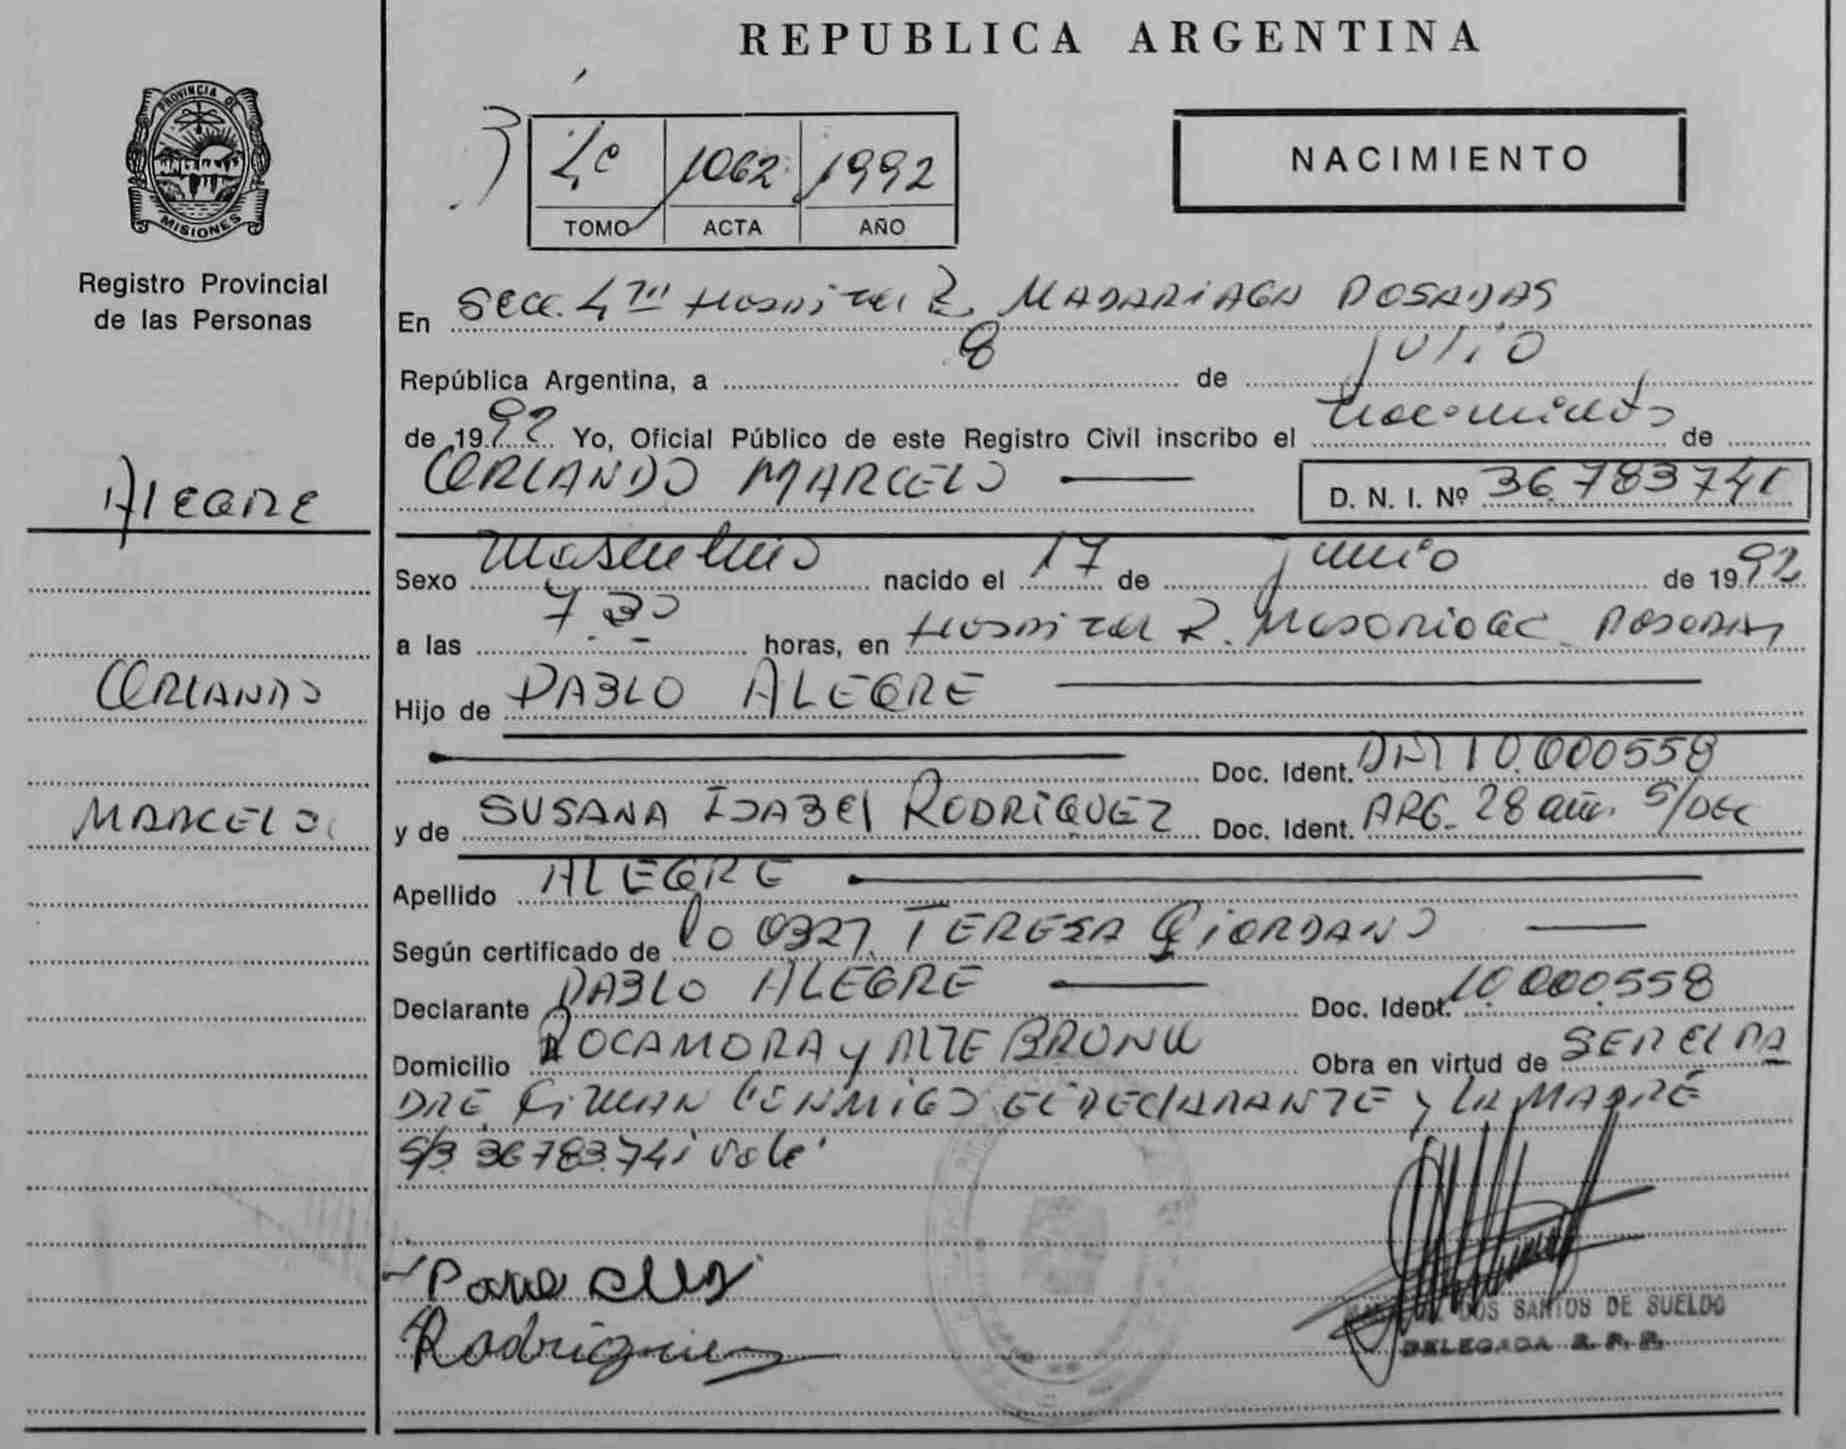 REPUBLICA ARGENTINA
PROVINCIA DE
MISIONES
Registro Provincial
de las Personas
ALEGRE
ORLANDO
MARCELO
1062 1992
TOMO ACTA AÑO
NACIMIENTO
En Secc. 4 Hospital R. MADARIAGA POSADAS
República Argentina, a 8 de julio
de 1992 Yo, Oficial Público de este Registro Civil inscribo el nacimiento de
ORLANDO MARCELO D. N. I. Nº 36.783741
Sexo Masculino nacido el 17 de junio de 1992
a las 7.30 horas, en Hospital R. Madariaga Posadas
Hijo de PABLO ALEGRE
Doc. Ident. DNI 10.000558
y de SUSANA ISABEl RODRIGUEZ Doc. Ident. ARG. 28 añ. S/DEC
Apellido ALEGRE
Según certificado de TERESA GIORDANO
Declarante PABLO ALEGRE Doc. Ident. 10.000.558
Domicilio ROCAMORA y ALTE BROWN Obra en virtud de SER El PA
DRE FIRMAN CONMIGO El DEClARANTE y LA MADRE
S/B. 36783.741 vale
Rodriguez
DOS SANTOS DE SUELDO
DELEGADA R. P. P.